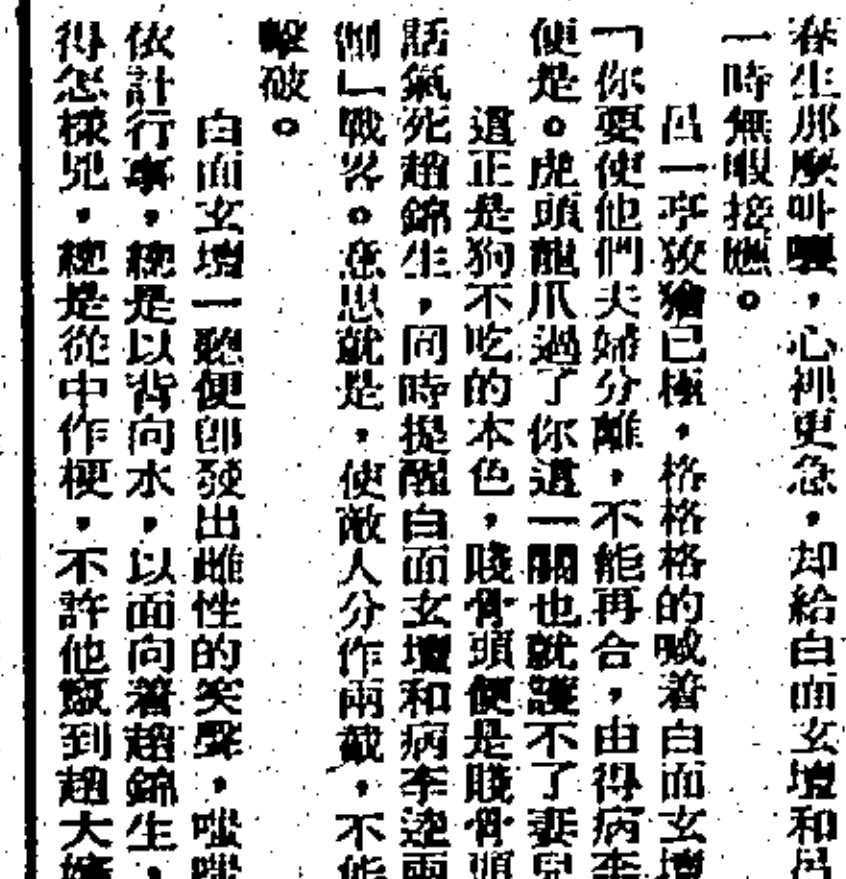 春生那麼叫嚷，心裡更急，却給白面玄壇和呂
一時無暇接應。
呂一亭狡獪已極，格格格的喊着白面玄壇
「你要使他們夫婦分離，不能再合，由得病李
便是。虎頭龍爪過了你這一關也就護不了妻兒
這正是狗不吃的本色，賤骨頭便是賤骨頭
話氣死趙錦生，同時提醒白面玄壇和病李逵兩
」戰畧。意思就是，使敵人分作兩截，不能
擊破。
白面玄壇一聽便即發出雌性的笑聲，嗤嗤
依計行事，總是以背向水，以面向着趙錦生，
得怎樣兇，總是從中作梗，不許他竄到趙大